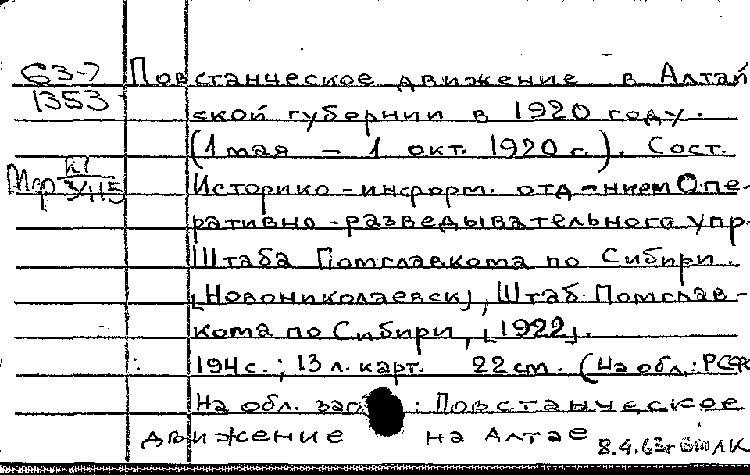 63-7
1353
Повстанческое движение в Алтай
ской губернии в 1920 году.
(1 мая – 1 окт. 1920 г.). Сост.
Историко-информ. отд-нием Опе-
ративно-разведывательного упр.
Штаба Помглавкома по Сибири.
[Новониколаевск], Штаб Помглав-
кома по Сибири, [1922].
194 с.; 13 л. карт. 22 см. (На обл.: РСФ
На обл. заг : Повстанческое
движение на Алтае 8.4.63г